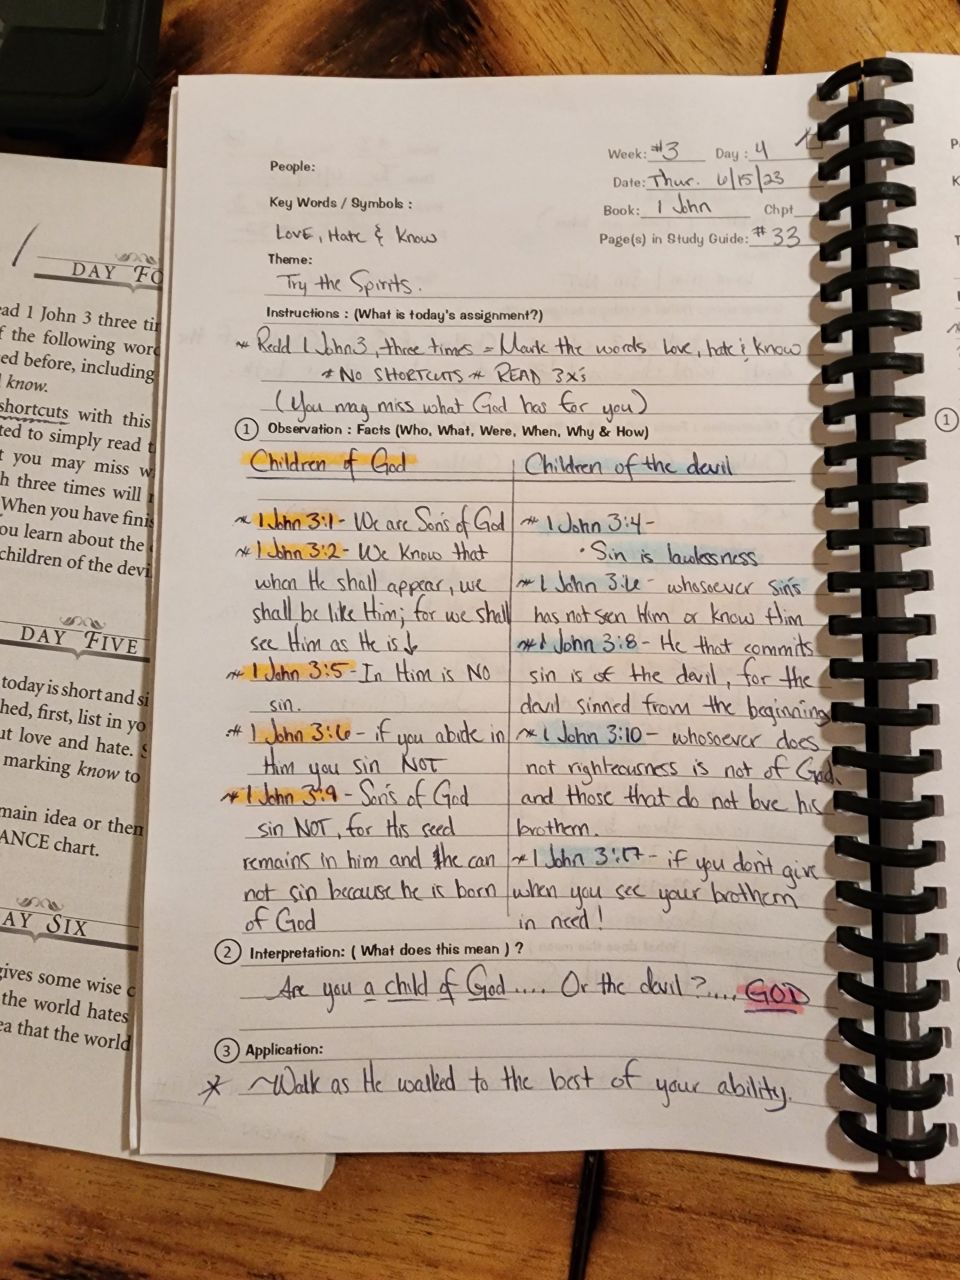 DAY FO
ead 1 John 3 three tim
f the following word
ed before, including
know.
shortcuts with this
ted to simply read t
t you may miss w
h three times will r
When you have finis
ou learn about the c
children of the devi
DAY FIVE
today is short and si
hed, first, list in yo
ut love and hate. S
marking know to
main idea or then
ANCE chart.
AY SIX
gives some wise c
the world hates
ea that the world
People:
Week: #3 Day: 4
Date: Thur. 6/15/23
Key Words / Symbols :
Book: 1 John Chpt
Love, Hate & Know
Page(s) in Study Guide: #33
Theme:
Try the Spirits.
Instructions : (What is today's assignment?)
* Read 1 John 3, three times = Mark the words Love, hate & know
* NO SHORTCUTS * READ 3x's
(You mag miss what God has for you)
1 Observation : Facts (Who, What, Were, When, Why & How)
Children of God
* 1 John 3:1 - We are Son's of God
* 1 John 3:2 - We know that
when He shall appear, we
shall be like Him; for we shall
see Him as He is↓
* 1 John 3:5 - In Him is NO
sin.
* 1 John 3:6 - if you abide in
Him you sin NOT
* 1 John 3:9 - Son's of God
sin NOT, for His seed
remains in him and he can
not sin because he is born
of God
Children of the devil
* 1 John 3:4 -
• Sin is lawlessness
* 1 John 3:6 - whosoever sin's
has not seen Him or know Him
* 1 John 3:8 - He that commits
sin is of the devil, for the
devil sinned from the beginning
* 1 John 3:10 - whosoever does
not righteousness is not of God.
and those that do not love his
brothern.
* 1 John 3:17 - if you don't give
when you see your brothern
in need!
2 Interpretation: ( What does this mean ) ?
Are you a child of God.... Or the devil?.... GOD
3 Application:
* ~Walk as He walked to the best of your ability.